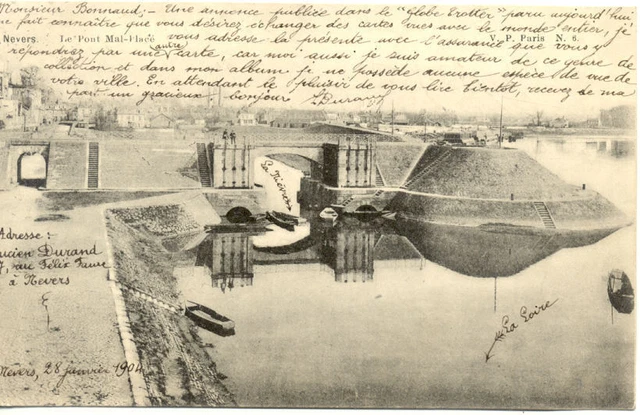 Monsieur Bonnaud :- Une annonce publiée dans le "Globe Trotter" paru aujourd'hui,
me fait connaître que vous désirez échanger des cartes vues avec le monde entier, je
Nevers. Le Pont Mal-Placé
vous adresse la présente avec l'assurance que vous y
V. P. Paris N. 6.
répondrez par une autre carte, car moi aussi je suis amateur de ce genre de
collection et dans mon album je ne possède aucune espèce de vue de
votre ville. En attendant le plaisir de vous lire bientôt, recevez de ma
part un gracieux bonjour L. Durand
La Nièvre
Adresse :
Lucien Durand
7, rue Félix Faure
à Nevers
La Loire
Nevers, 28 janvier 1904